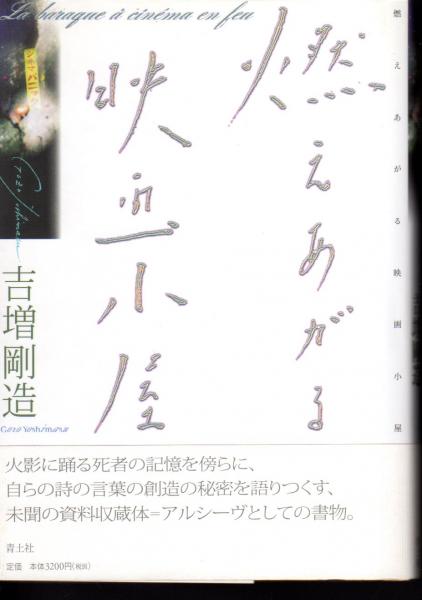 La baraque à cinéma en feu
燃えあがる
映画小屋
燃えあがる映画小屋
シネマパニ
Gozo Yoshimasu
吉増剛造
Gozo Yoshimasu
火影に踊る死者の記憶を傍らに、
自らの詩の言葉の創造の秘密を語りつくす、
未聞の資料収蔵体=アルシーヴとしての書物。
青土社
定価 本体3200円(税別)